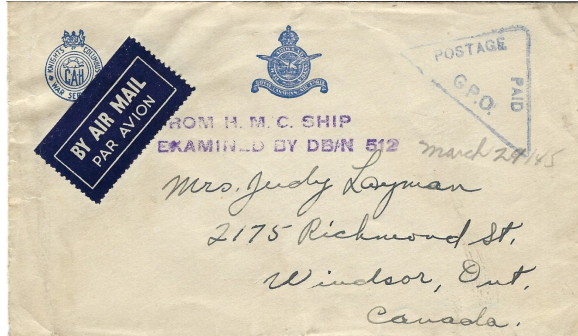 KNIGHTS COLUMBUS
WAR SE
CAH
BY AIR MAIL
PAR AVION
ROYAL CANADIAN AIR FORCE
POSTAGE
PAID
G.P.O.
ROM H. M. C. SHIP
EXAMINED BY DB/N 512
March 29/45
Mrs. Judy Layman
2175 Richmond St.
Windsor, Ont.
Canada.